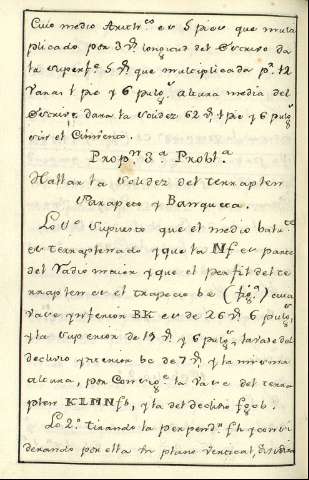 Cuio medio Arithco es 5 pies que multi
plicado por 3 vs longitud del Estrivo da
la superfe 5 vs que multiplicada pr 12
varas 1 pie y 6 pulgs altura media del
Estrivo dara la solidez 62 vs 1 pie y 6 pulgs
sin el Cimiento.
Propn 3a Probla
Hallar la solidez del terraplen
Parapeto y Banqueta.
Lo 1o supuesto que el medio balute
es terraplenado y que la Nf es parte
del Radio maior y que el perfil del te
rraplen es el trapecio be (figa) cuia
vase ynferior BK es de 26 vs 6 pulgs
y la superior de 19 vs y 6 pulgs, la vase del
declivio ynterior bc de 7 vs y la misma
altura, por Consige la vase del terra
plen KLMNfb, y la del declivio fgcb.
Lo 2o tirando la perpendr fh y consi
derando por ella un plano vertical,